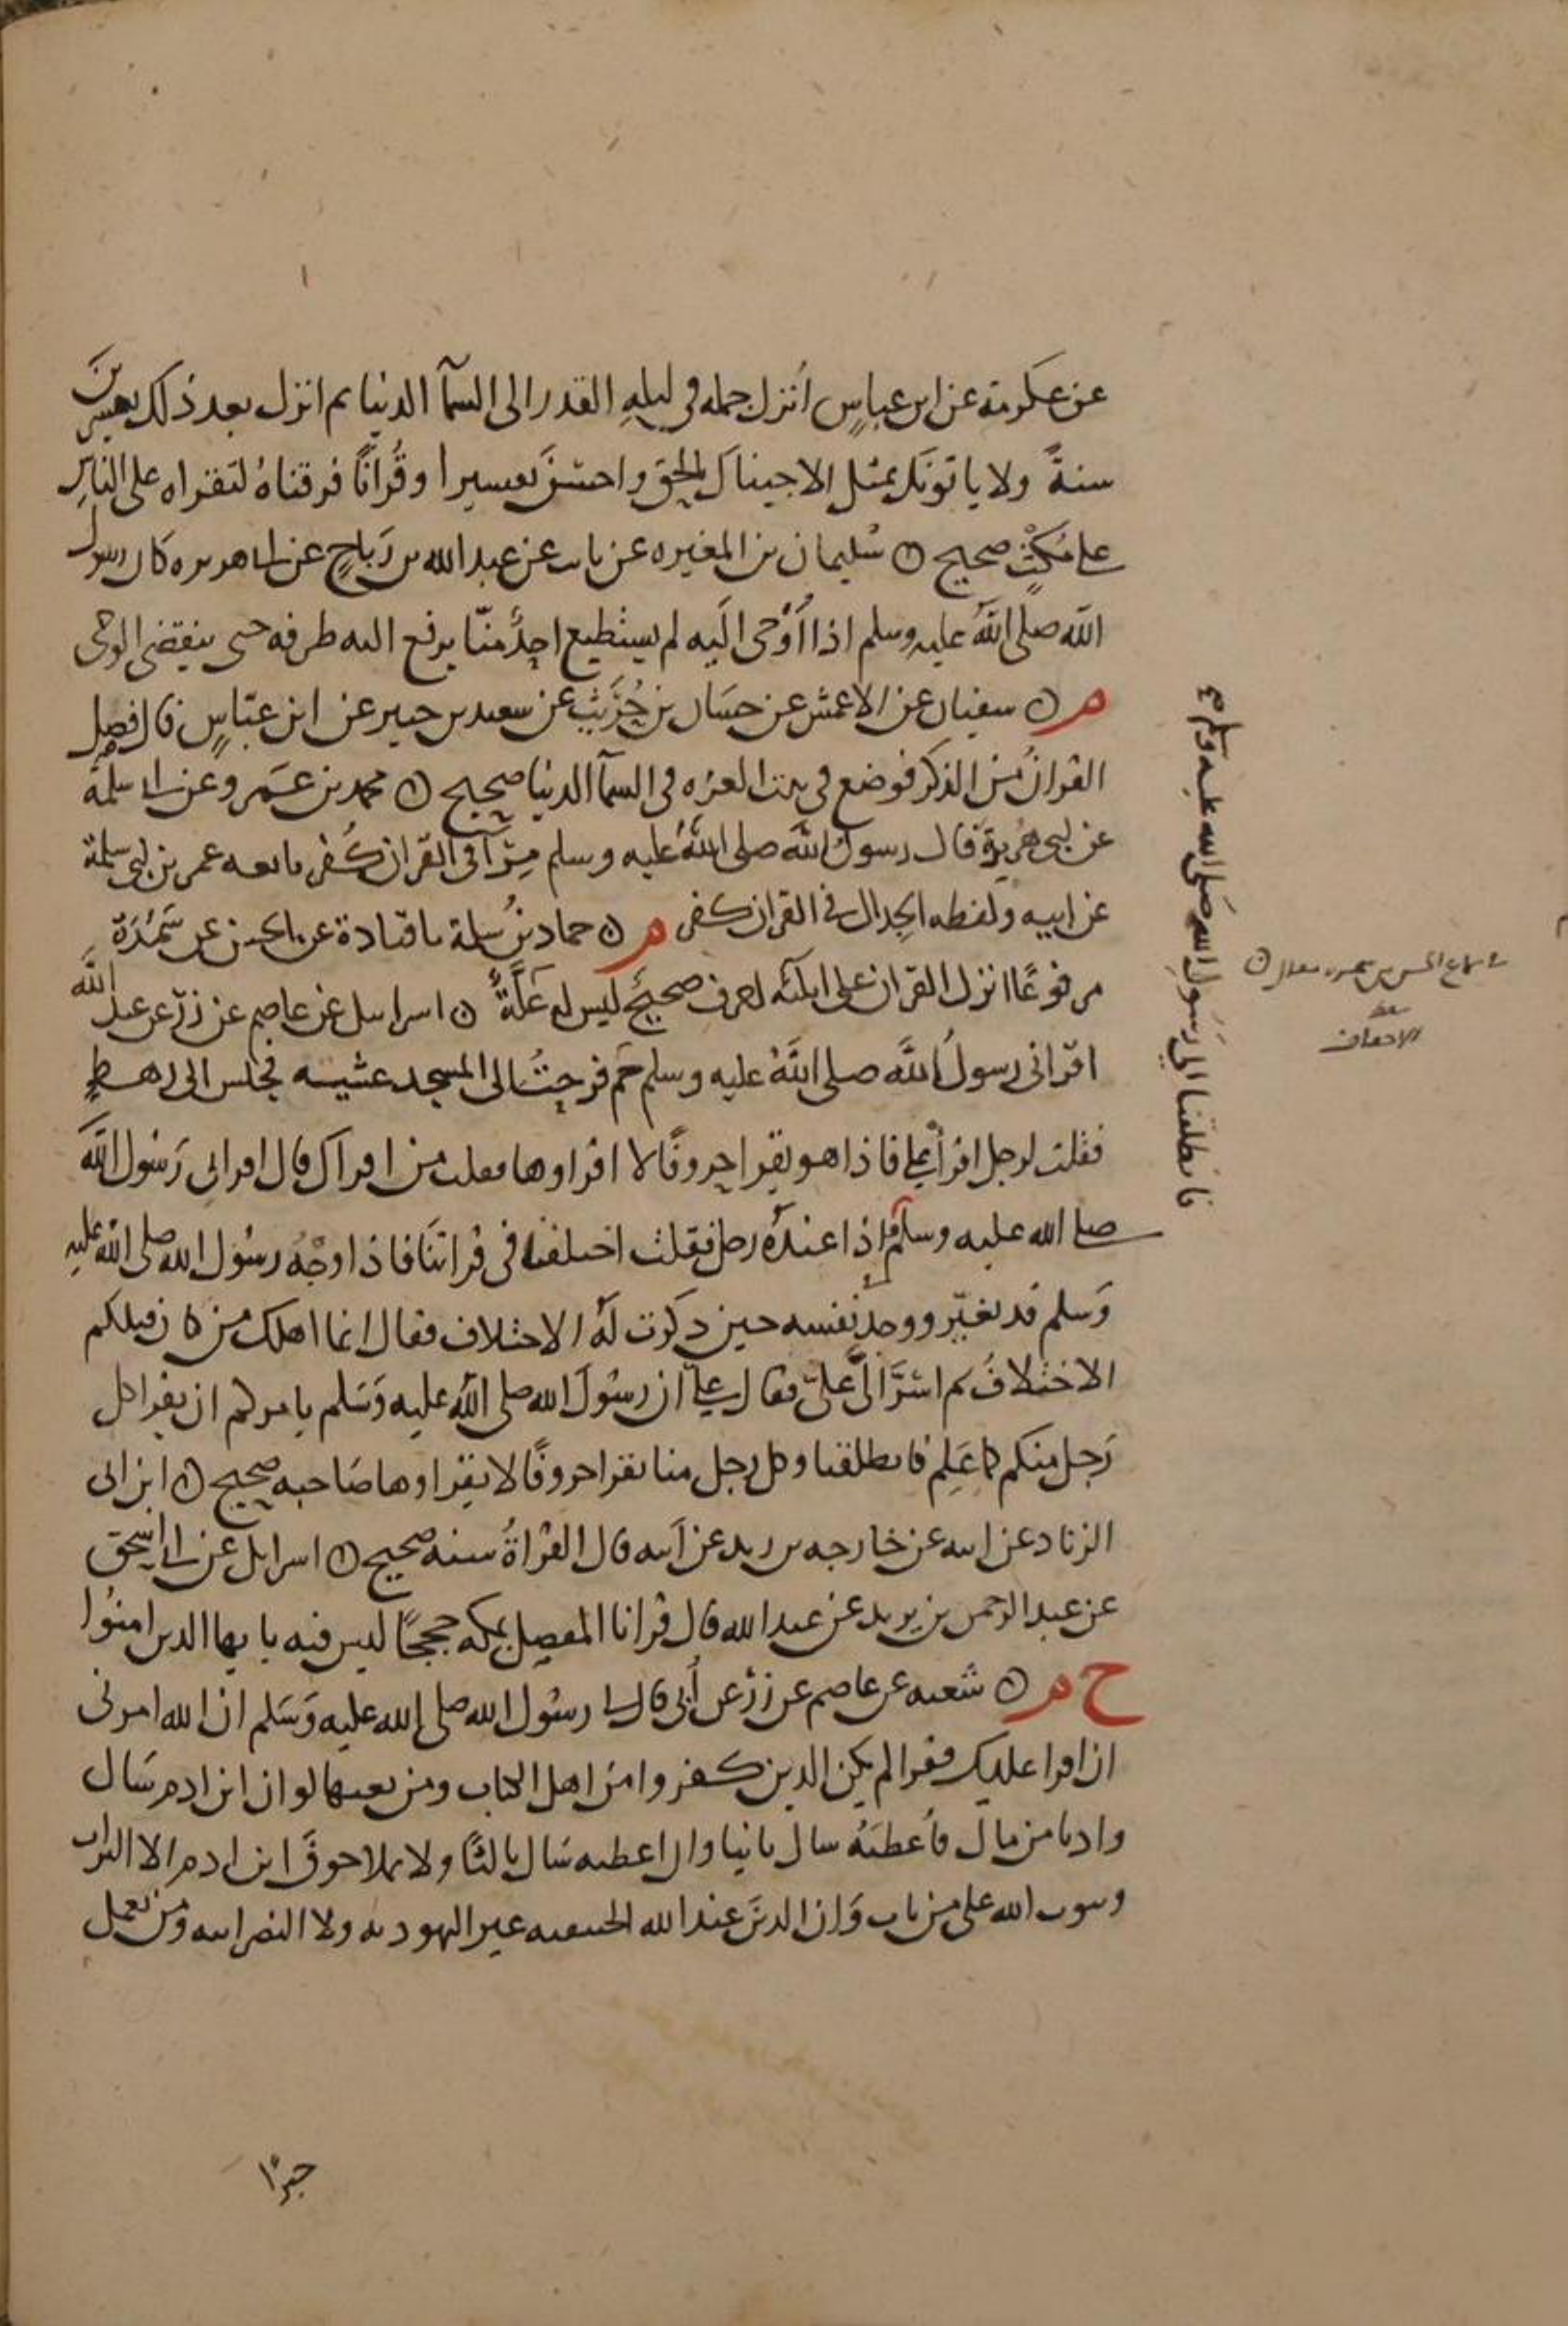 عن عكرمة عن ابن عباسٍ أنزل جمله في ليلهِ القدر الى السمآ الدنيا ثم انزل بعد ذلك بعشرين
سنةً ولا ياتونك بمثل الا جيناك بالحق واحسن تفسيرا وقُرانًا فرقناهُ لتقراه على الناس
على مُكْثٍ صحيح ن سُليمان بن المغيره عن ثابت عن عبد الله بن رَباحٍ عن ابى هريره كان رسول
الله صلى اللهُ عليه وسلم اذا أُوْحى اليه لم يستطيع احدٌ منّا يرفع اليه طرفه حتى ينقضى الوحى
م ن سفيان عن الاعمش عن حسَان بن حُرَيْثٍ عن سعيد بن جبير عن ابن عبّاسٍ قال فصل
القرانُ من الذكر فوضع في بيت العزه في السمآ الدنيا صحيح ن محمد بن عَمرو عن ابى سلمة
عن ابى هريرة قال رسولُ الله صلى اللهُ عليه وسلم مِرآ في القران كُفر تابعه عمر بن ابى سلمة
عن ابيه ولفظه الجدال في القران كفر م ن حماد بنُ سلمة نا قتادة عن الحسن عن سَمُرَة
مرفوعًا انزل القران على ثلثه احرف صحيحٌ ليس له عَلَّةٌ ن اسرايل عن عاصم عن زرّ عن عبد الله
اقرانى رسولُ اللَّه صلى اللهُ عليه وسلم حم فرحتُ الى المسجد عشيه فجلس الى رهطٍ
فقلت لرجل اقرأ علىَّ فاذا هو يقرا حروفًا لا اقراوها فقلت من اقراك قال اقرانى رَسُول الله
صلى الله عليه وسلم فاذا عندهُ رجل فقلت اختلفنا في قراتنَا فاذا وجْهُ رسُول الله صلى الله عليه
وَسلم قد تغيّر ووجد نفسه حين ذكرت لهُ الاختلاف فقال انما اهلك من كان قبلكم
الاختلافُ ثم اسَرَّ الىَّ علىّ فقال علىٌّ ان رسُولَ الله صلى اللهُ عليه وَسَلم يامركم ان يقرا كل
رَجل منكم كما عَلِم فانطلقنا وكل رجل منا يقرا حروفًا لا يقراوها صَاحبه صحيح ن ابن ابى
الزناد عن ابيه عن خارجه بن زيد عن ابيه قال القراةُ سنه صحيح ن اسرايل عن ابى اسحق
عن عبد الرحمن بن يزيد عن عبد الله قال قرانا المفصل بمكه حججًا ليس فيه يا يها الذين امنُوا
خ م ن شعبه عن عاصم عن زرّ عن أُبى قال لى رسُول الله صلى الله عليه وَسَلم ان الله امرنى
ان اقرا عليك فقرا لم يكن الذين كفروا من اهل الكتاب ومن نعتها لو ان ابن ادم سَال
واديا من مال فأُعطيَهُ سال ثانيا وان اعطيه سَال ثالثًا ولا يملا جوفَ ابن ادم الا التراب
ويتوب الله على من تاب وَان الدينَ عند الله الحنيفيه غير اليهوديه ولا النصرانيه ومن يعمل
فانطلقنا الى رَسُول الله صَلى الله عليه وسلم صح
سماع الحسن من سمره
الاحقاف
خيرًا